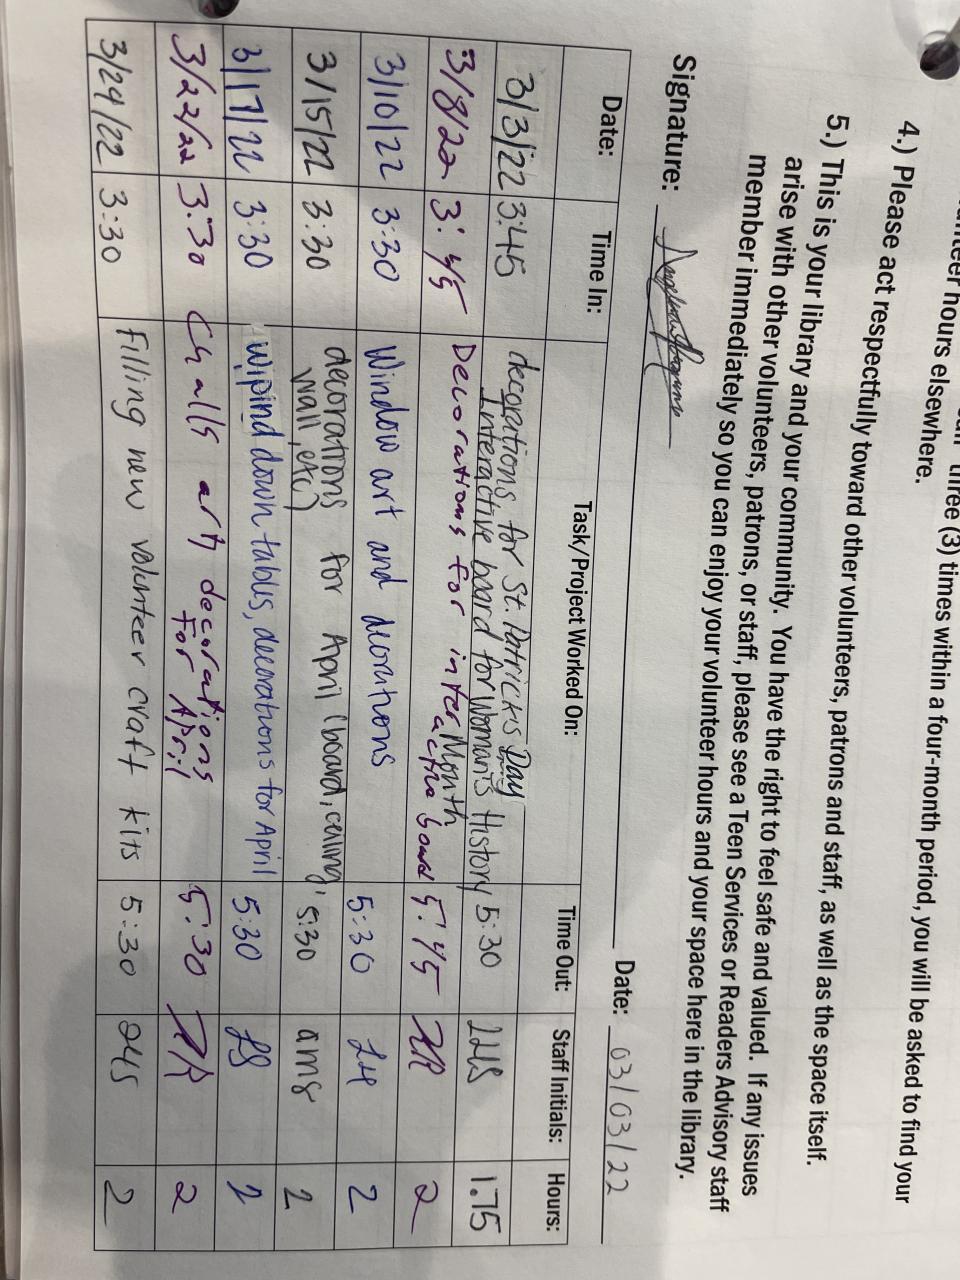 hours elsewhere. three (3) times within a four-month period, you will be asked to find your
4.) Please act respectfully toward other volunteers, patrons and staff, as well as the space itself.
5.) This is your library and your community. You have the right to feel safe and valued. If any issues
arise with other volunteers, patrons, or staff, please see a Teen Services or Readers Advisory staff
member immediately so you can enjoy your volunteer hours and your space here in the library.
Signature: Date: 03/03/22
Date: Time In: Task/Project Worked On: Time Out: Staff Initials: Hours:
3/3/22 3:45 decorations for St. Patrick's Day 5:30 1.75
Interactive board for Woman's History
Month
3/8/22 3:45 Decorations for interactive board 5:45 2
3/10/22 3:30 Window art and decorations 5:30 2
3/15/22 3:30 decorations for April (board, ceiling, 5:30 ams 2
wall, etc)
3/17/22 3:30 wipind down tables, decorations for April 5:30 2
3/22/22 3:30 art decorations 5:30 2
for April
3/24/22 3:30 filling new volunteer craft kits 5:30 2